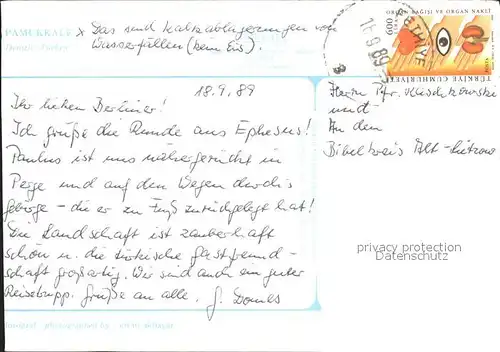 PAMUKKALE
Denizli - Türkiye
x Das sind Kalkablagerungen von
Wasserfällen (kein Eis).
ORGAN BAĞIŞI VE ORGAN NAKLİ
TÜRKİYE CUMHURİYETİ
18.9.89
Ihr lieben Berliner!
Ich grüße die Runde aus Ephesus!
Paulus ist uns nähergerückt in
Perge und auf den Wegen durchs
Gebirge - die er zu Fuß zurückgelegt hat!
Die Landschaft ist zauberhaft
schön u. die türkische Gastfreund-
schaft großartig. Wir sind auch ein guter
Reisetrupp. Grüße an alle.
Herrn Pfr.
und
An den
Bibelkreis Alt-Lietzow
privacy protection
Datenschutz